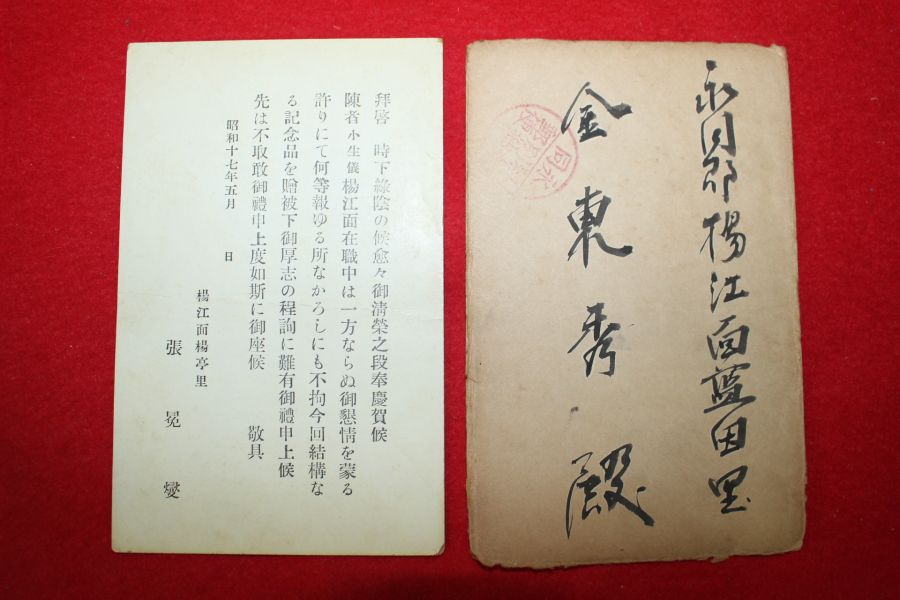 永同郡楊江面藍田里
金東秀殿
拜啓　時下綠陰の候愈々御清榮之段奉慶賀候
陳者小生儀楊江面在職中は一方ならぬ御懇情を蒙る
許りにて何等報ゆる所なかろしにも不拘今回結構な
る記念品を贈被下御厚志の程詢に難有御禮申上候
先は不取敢御禮申上度如斯に御座候　敬具
昭和十七年五月　日
楊江面楊亭里
張冕燮